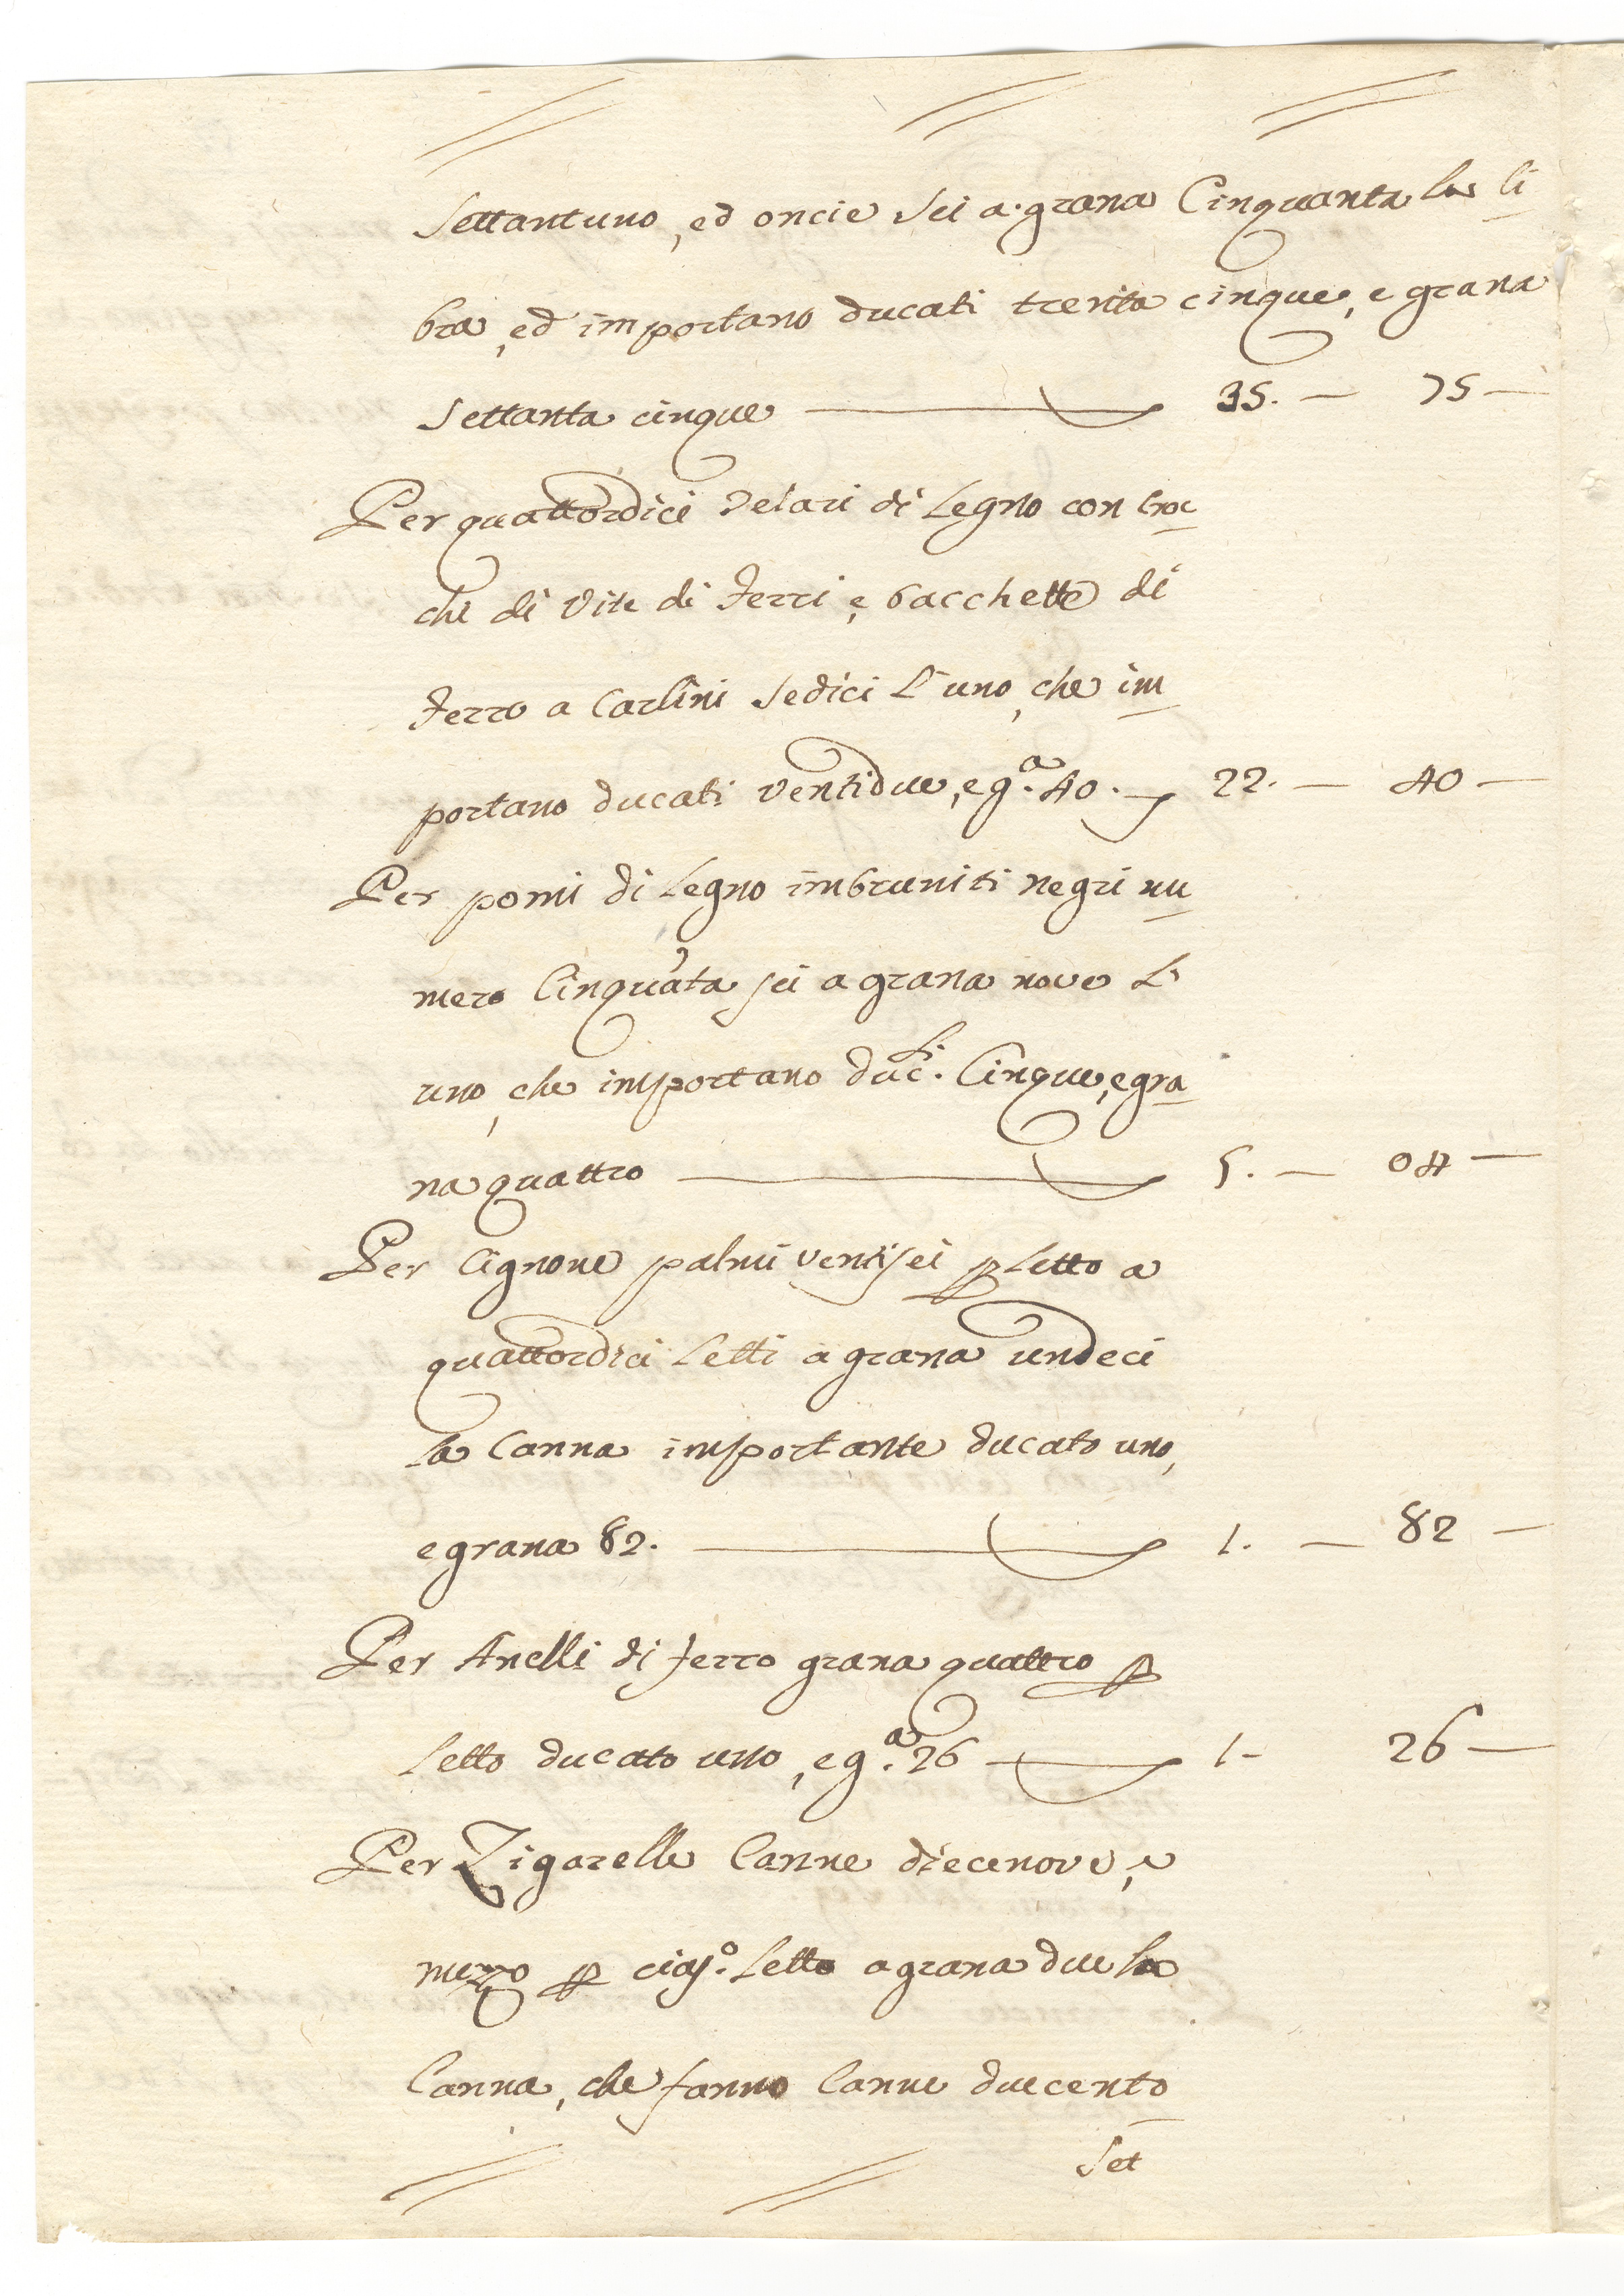 settantuno, ed oncie sei a grana Cinquanta la li
bra, ed importano ducati trenta cinque, e grana
Settanta cinque 35. — 75 —
Per quattordici Telari di Legno con broc
che di Vite di ferri, e bacchette di
ferro a Carlini Sedici L'uno, che im
portano ducati Ventidue, e g.a 40. 22. — 40 —
Per pomi di Legno imbruniti negri nu
mero Cinquãta sei a grana nove L'
uno, che importano duc.ti Cinque, e gra
na quattro 5. — 04 —
Per Cignone palmi ventisei p Letto a
quattordici Letti a grana undeci
la Canna importante ducato uno,
e grana 82. 1. — 82 —
Per Anelli di ferro grana quattro p
Letto ducato uno, e g.a 26 1 — 26 —
Per Zigarelle Canne diecenove, e
mezzo p ciasc.o Letto a grana due la
Canna, che fanno Canne duecento
Set